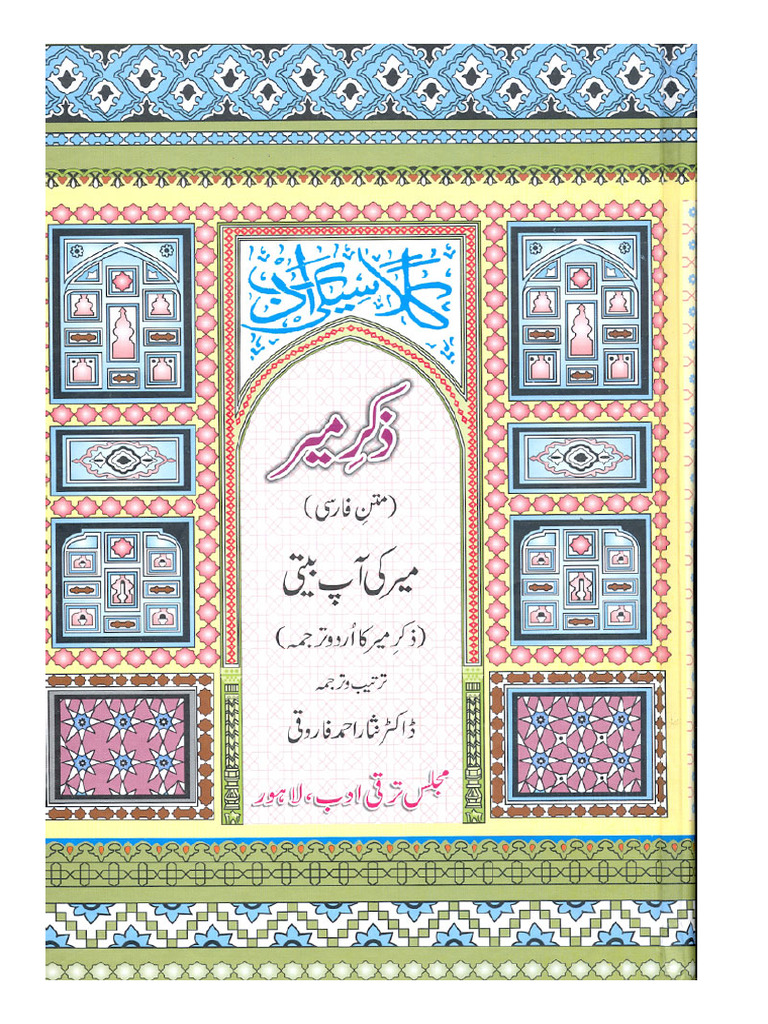 کلاسیکی ادب
ذکرِ میر
(متنِ فارسی)
میر کی آپ بیتی
(ذکرِ میر کا اُردو ترجمہ)
ترتیب و ترجمہ
ڈاکٹر نثار احمد فاروقی
مجلس ترقیِ ادب، لاہور